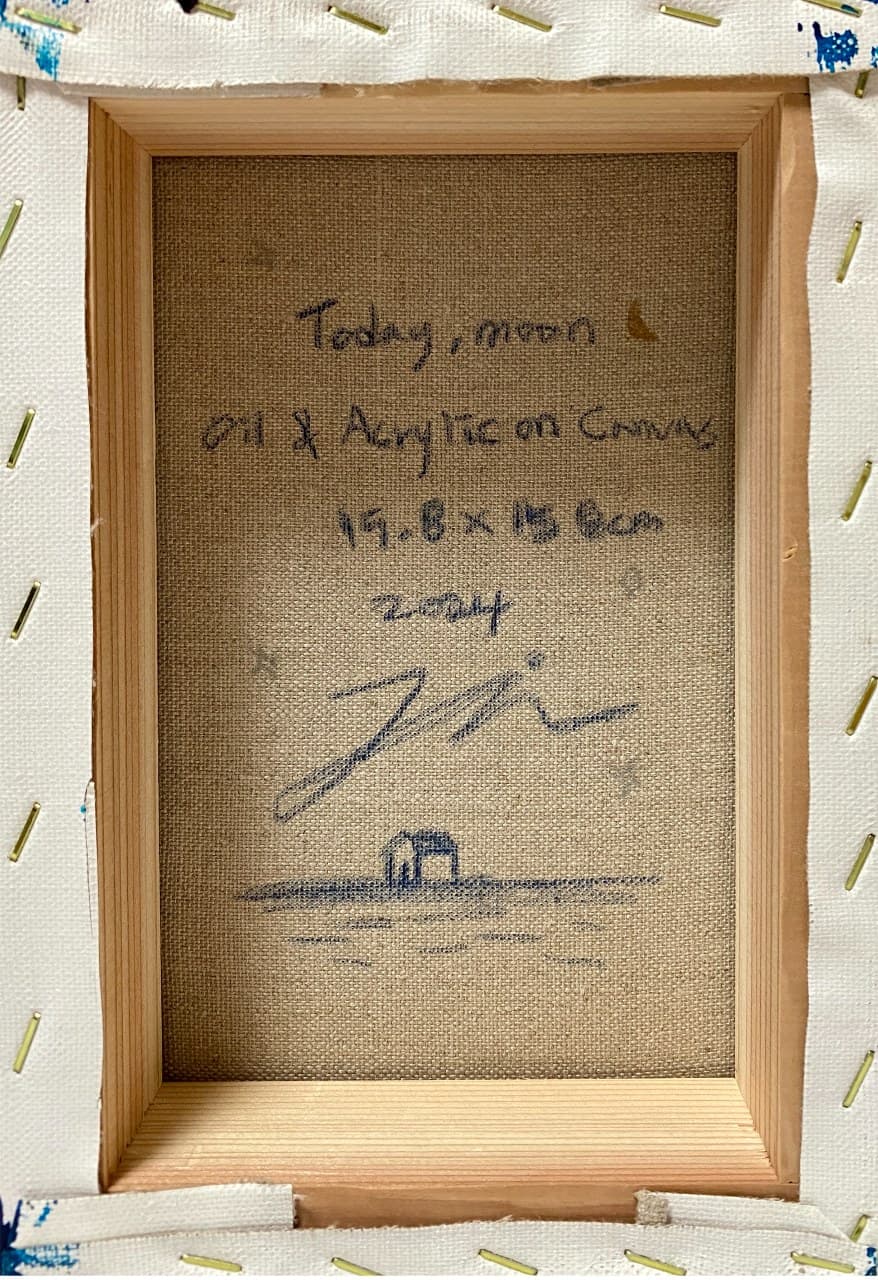 Today, moon
Oil & Acrylic on Canvas
19.8 x 15 8cm
2024